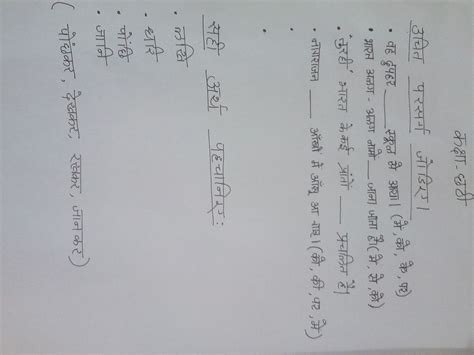 कक्षा-छठी
उचित परसर्ग जोडिए।
• वह दुपहर ____ स्कूल से आया। (से, को, के, पर)
• भारत अलग-अलग नामों ____ जाना जाता है। (में, से, को)
• तुरही भारत के कई प्रांतों ____ प्रचलित है।
• नागराजन ____ आँखों में आँसू आ गए। (की, की, पर, में)
•
सही अर्थ पहचानिए:
•
•
• पोंछि
• जानि
( पोंछकर, देखकर, रखकर, जानकर )